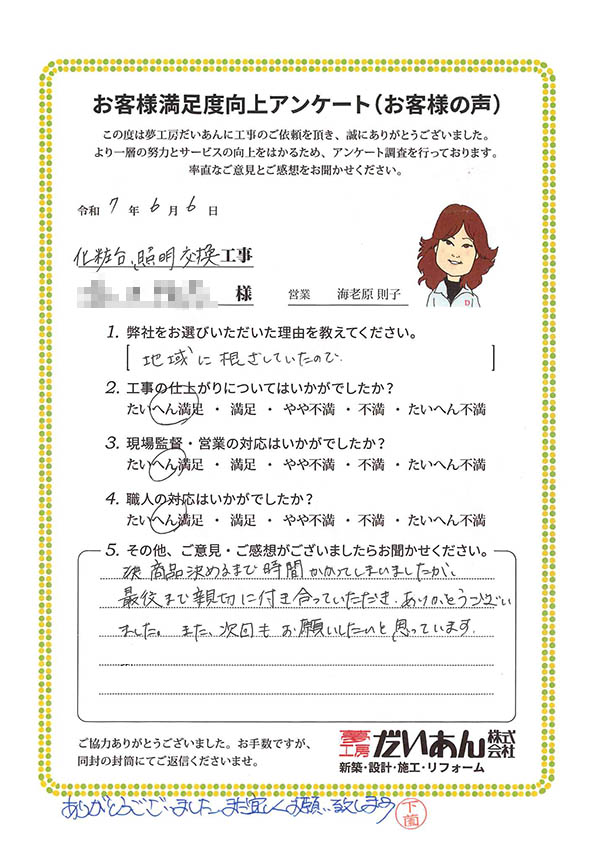 お客様満足度向上アンケート(お客様の声)
この度は夢工房だいあんに工事のご依頼を頂き、誠にありがとうございました。
より一層の努力とサービスの向上をはかるため、アンケート調査を行っております。
率直なご意見とご感想をお聞かせください。
令和 7 年 6 月 6 日
化粧台、照明交換工事
様 営業 海老原 則子
D
1. 弊社をお選びいただいた理由を教えてください。
[ 地域に根ざしていたので. ]
2. 工事の仕上がりについてはいかがでしたか?
たいへん満足 ・ 満足 ・ やや不満 ・ 不満 ・ たいへん不満
3. 現場監督・営業の対応はいかがでしたか?
たいへん満足 ・ 満足 ・ やや不満 ・ 不満 ・ たいへん不満
4. 職人の対応はいかがでしたか?
たいへん満足 ・ 満足 ・ やや不満 ・ 不満 ・ たいへん不満
5. その他、ご意見・ご感想がございましたらお聞かせください。
商品決めるまで時間かかってしまいましたが、
最後まで親切に付き合っていただき、ありがとうござい
ました。また、次回もお願いしたいと思っています.
ご協力ありがとうございました。お手数ですが、
同封の封筒にてご返信くださいませ。
夢工房だいあん株式会社
新築・設計・施工・リフォーム
ありがとうございました。また宜しくお願い致します 下薗